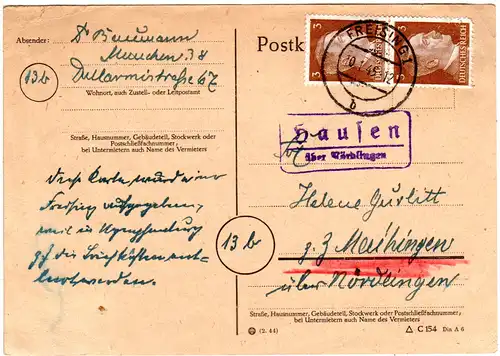 Absender: Dr Baumann
München 38
Dellarmistraße 67
13b
Wohnort, auch Zustell- oder Leitpostamt
Straße, Hausnummer, Gebäudeteil, Stockwerk oder
Postschließfachnummer;
bei Untermietern auch Name des Vermieters
Diese Karte, wurde in
Freising aufgegeben,
weil in Nymphenburg
die Briefkästen
werden.
Postk
3
3
DEUTSCHES REICH
FREISING 1
b
Hausen
über Nördlingen
Helene Gurlitt
z. Z. Maihingen
13b
über Nördlingen
Straße, Hausnummer, Gebäudeteil, Stockwerk oder Postschließfachnummer;
bei Untermietern auch Name des Vermieters
(2. 44)
C 154 Din A 6